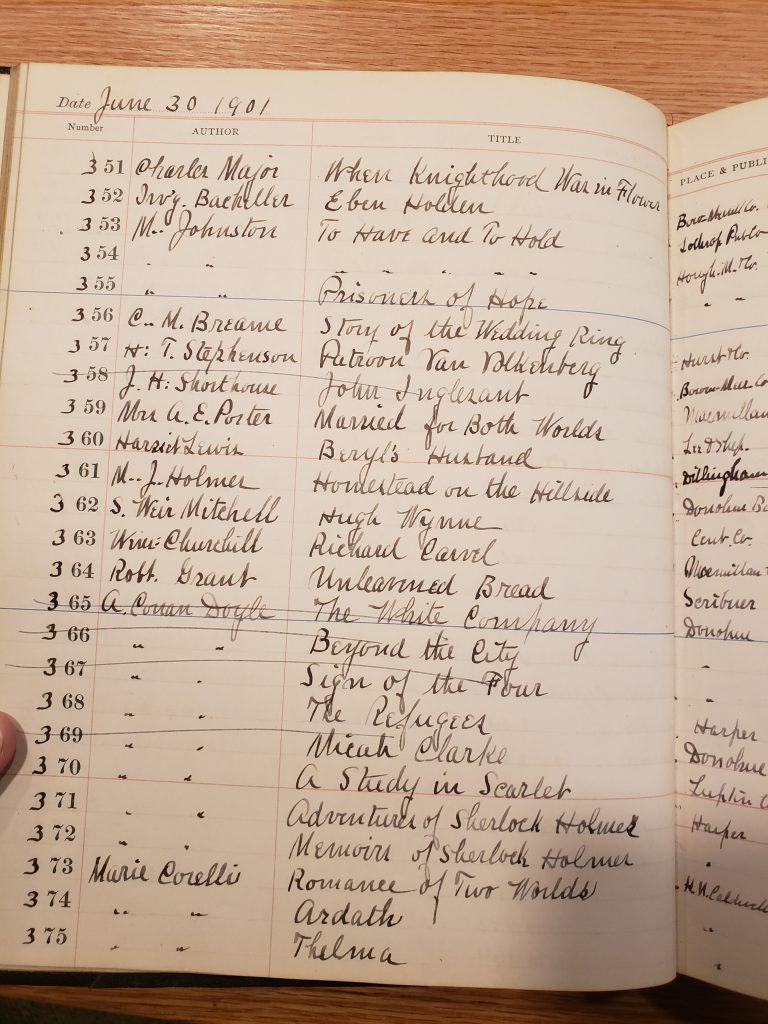 Date June 30 1901
Number AUTHOR TITLE PLACE & PUBLI
351 Charles Major When Knighthood Was in Flower Bow-Merrill Co.
352 Irv'g. Bacheller Eben Holden Lothrop Pub Co
353 M.. Johnston To Have and To Hold Hough. M. & Co.
354 " " " " " " " " "
355 " " Prisoners of Hope
356 C.. M. Breame Story of the Wedding Ring Hurst & Co.
357 H: T. Stephenson Patroon Van Volkenberg Bowen-Mer. Co
358 J. H: Shorthouse John Inglesant Macmillan
359 Mrs A. E. Porter Married for Both Worlds Lee & Shep.
360 Harriet Lewis Beryl's Husband Dillingham
361 M.. J. Holmes Homestead on the Hillside Donohue
362 S. Weir Mitchell Hugh Wynne Cent. Co.
363 Wm: Churchill Richard Carvel Macmillan
364 Robt. Grant Unleavened Bread Scribner
365 A. Conan Doyle The White Company Donohue
366 " " Beyond the City "
367 " " Sign of the Four "
368 " " The Refugees Harper
369 " " Micah Clarke Donohue
370 " " A Study in Scarlet Lupton
371 " " Adventures of Sherlock Holmes Harper
372 " " Memoirs of Sherlock Holmes "
373 Marie Corelli Romance of Two Worlds
374 " " Ardath "
375 " " Thelma "